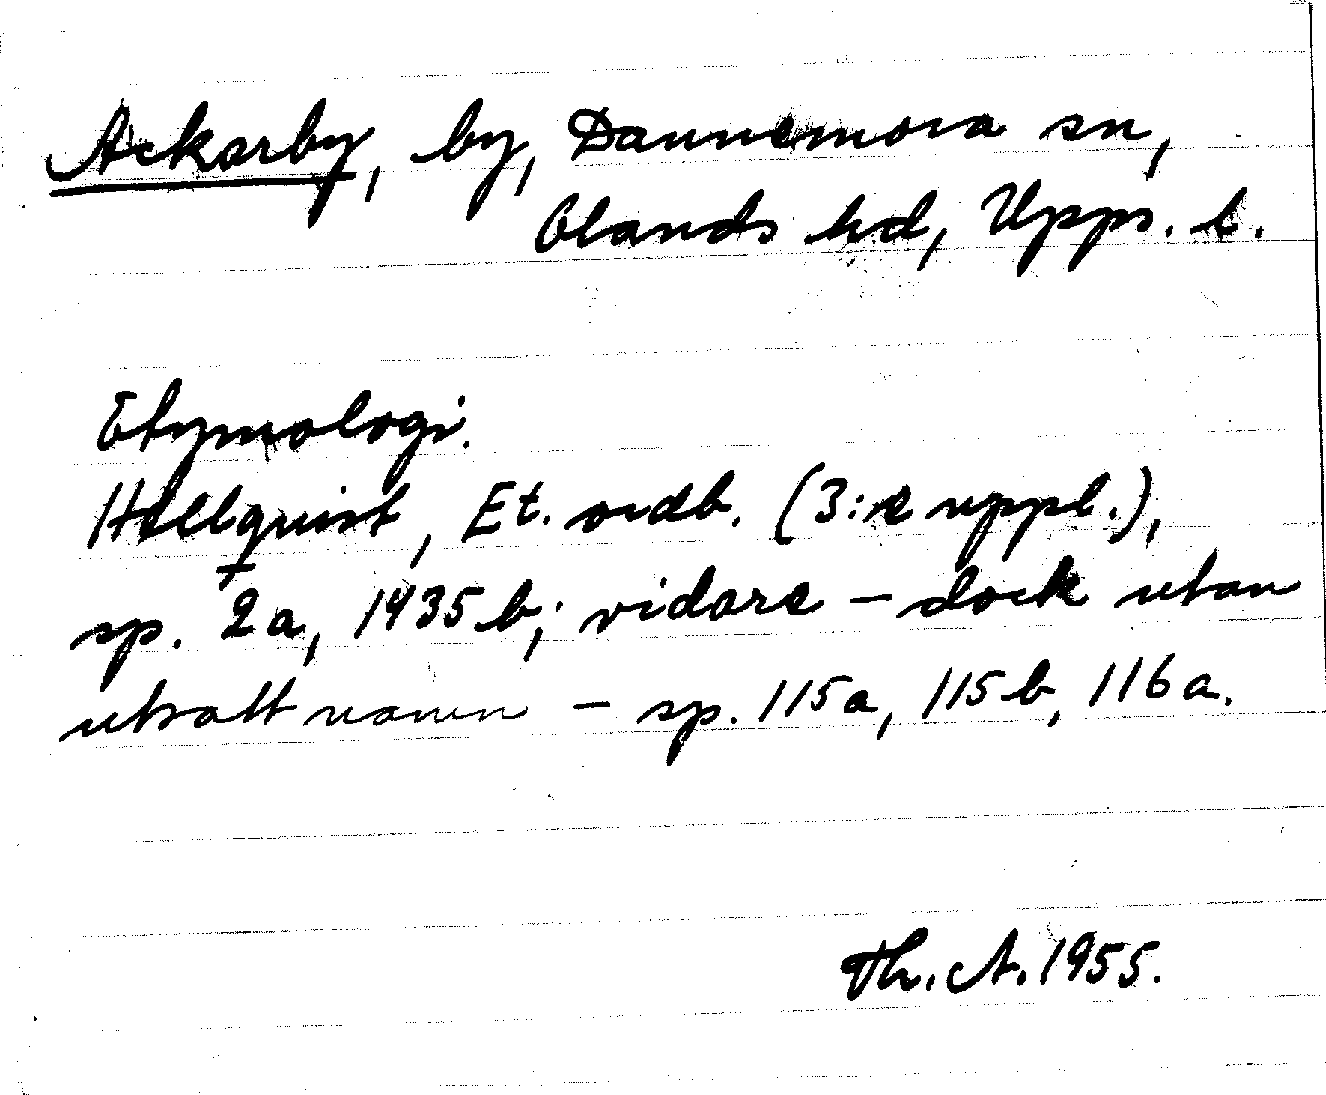 Ackarby, by, Dannemora sn,
Olands hd, Upps. l.
Etymologi.
Hellquist, Et. ordb. (3:e uppl.),
sp. 2a, 1435 b; vidare – dock utan
utsatt namn – sp. 115a, 115 b, 116 a.
Th. A. 1955.